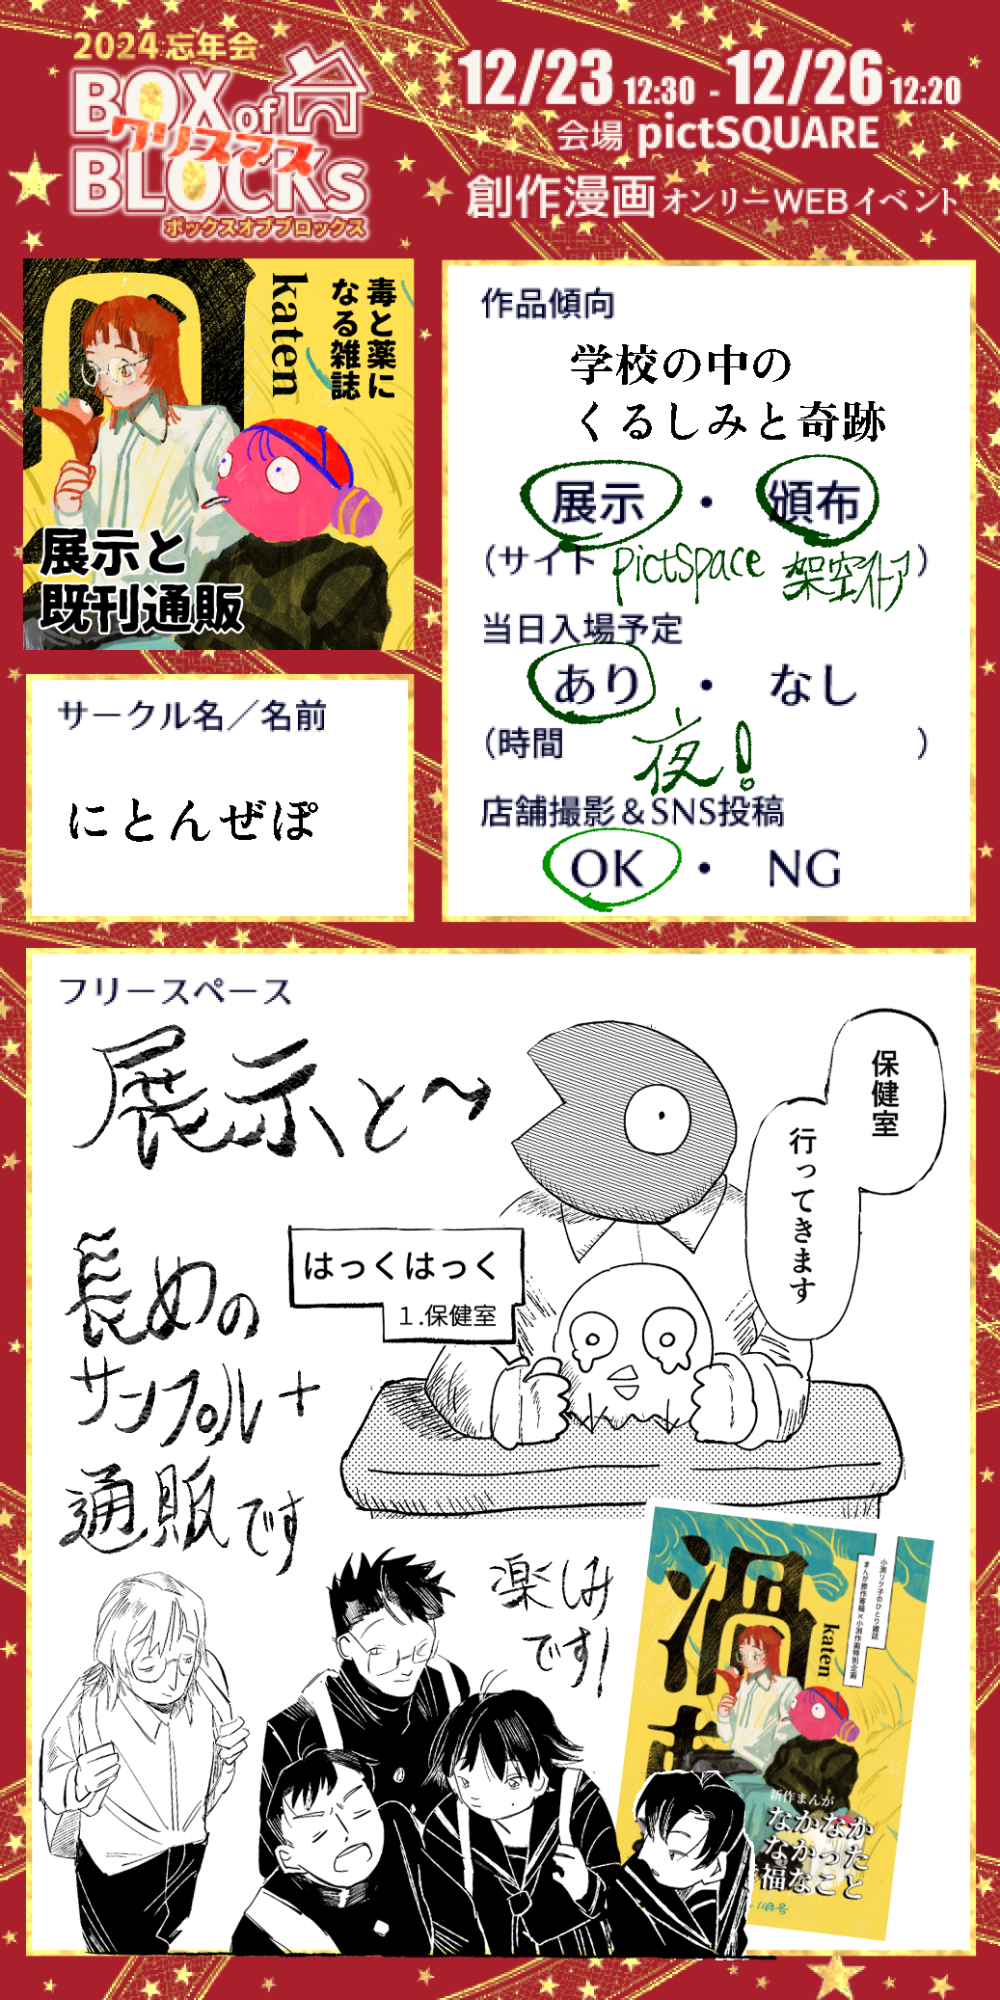 2024 忘年会
BOX of
クリスマス
BLOCKs
ボックスオブブロックス
12/23 12:30 - 12/26 12:20
会場 pictSQUARE
創作漫画オンリーWEBイベント
毒と薬に
なる雑誌
katen
展示と
既刊通販
サークル名／名前
にとんぜぽ
作品傾向
学校の中の
くるしみと奇跡
展示 ・ 頒布
(サイト pictSpace 架空ストア )
当日入場予定
あり ・ なし
(時間 夜! )
店舗撮影＆SNS投稿
OK ・ NG
フリースペース
展示と〜
保健室
行ってきます
はっくはっく
1.保健室
長めの
サンプル+
通販です
楽しみ
です!
小渕リツ子のひとり雑誌
まんが原作寄稿×小渕作画特別企画
渦
katen
新作まんが
なかなか
なかった
福なこと